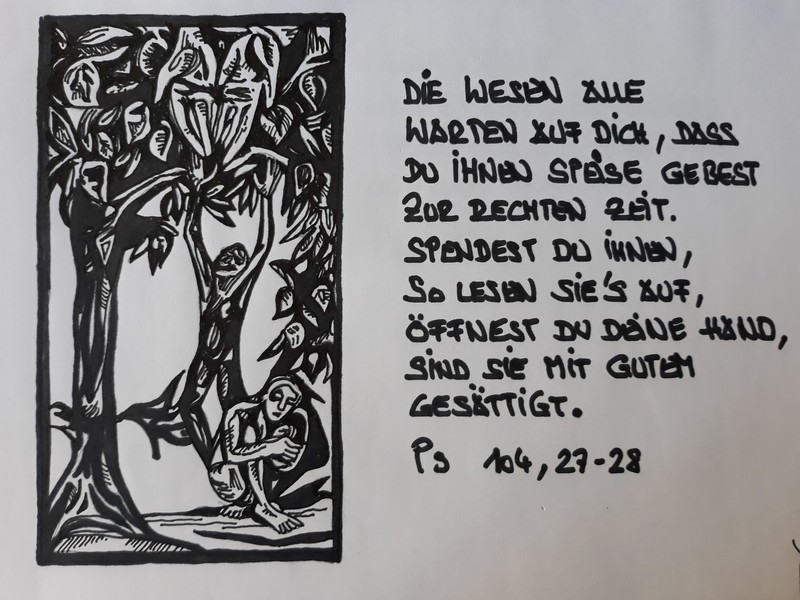 DIE WESEN ALLE
WARTEN AUF DICH, DASS
DU IHNEN SPEISE GEBEST
ZUR RECHTEN ZEIT.
SPENDEST DU IHNEN,
SO LESEN SIE'S AUF,
ÖFFNEST DU DEINE HAND,
SIND SIE MIT GUTEM
GESÄTTIGT.
Ps 104, 27-28